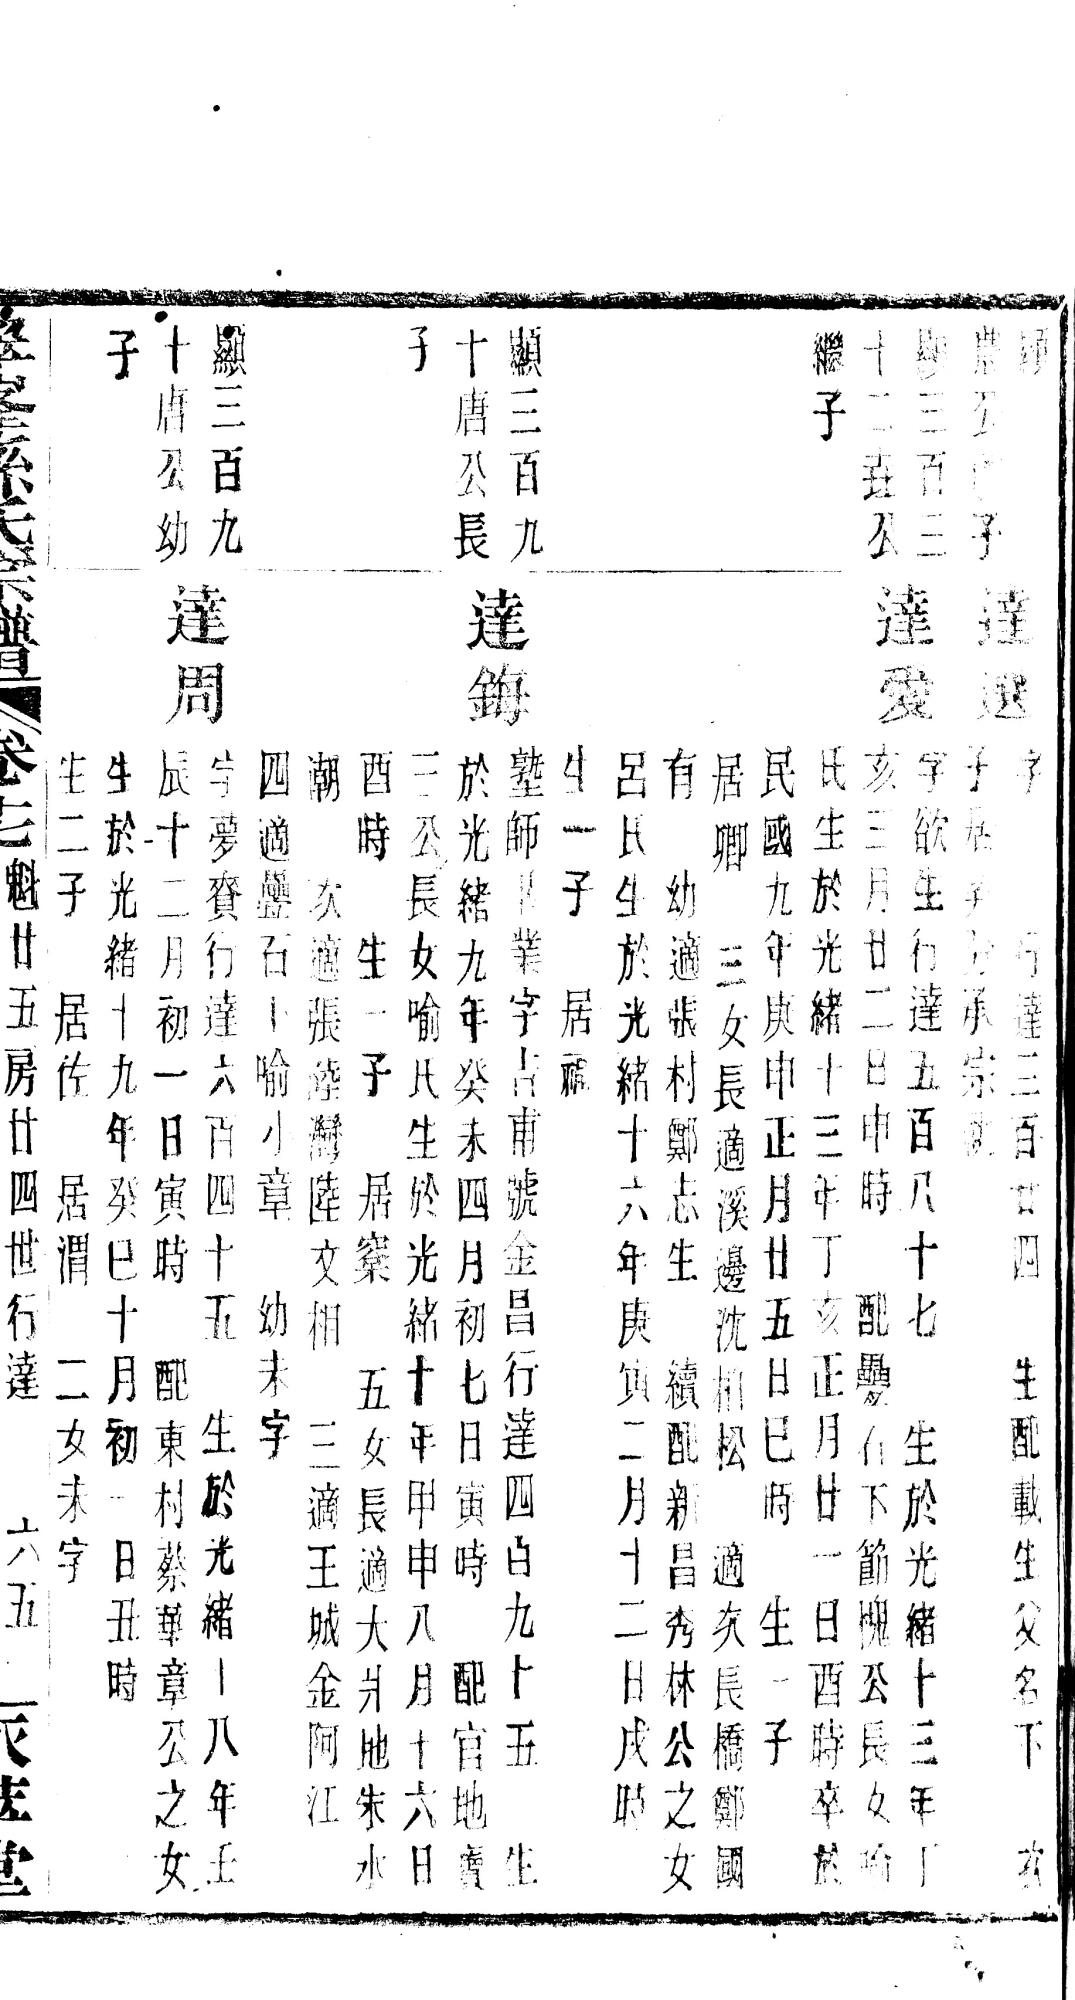 顯
農公 子
達選
字 行達三百廿四 生配載生父名下 玄
子居 承宗
顯三百三
十二莊公
繼子
達愛
字欲生行達五百八十七 生於光緒十三年丁
亥三月廿二日申時 配疊石下節槐公長女喻
氏生於光緒十三年丁亥正月廿一日酉時卒於
民國九年庚申正月廿五日巳時 生一子
居卿 三女長適溪邊沈柏松 適次長橋鄭國
有 幼適張村鄭志生 續配新昌秀林公之女
呂氏生於光緒十六年庚寅二月十二日戌時
生一子 居
顯三百九
十唐公長
子
達鋂
塾師 業字吉甫號金昌行達四百九十五 生
於光緒九年癸未四月初七日寅時 配官地寶
三公長女喻氏生於光緒十年甲申八月十六日
酉時 生一子 居寮 五女長適大爿地朱水
潮 次適張陸灣陸文相 三適王城金阿江
四適疊石下喻小章 幼未字
顯三百九
十唐公幼
子
達周
字夢賚行達六百四十五 生於光緒十八年壬
辰十二月初一日寅時 配東村蔡華章公之女
生於光緒十九年癸巳十月初一日丑時
生二子 居佐 居渭 二女未字
孫氏宗譜 卷十七 魁廿五房廿四世行達 六五 堂